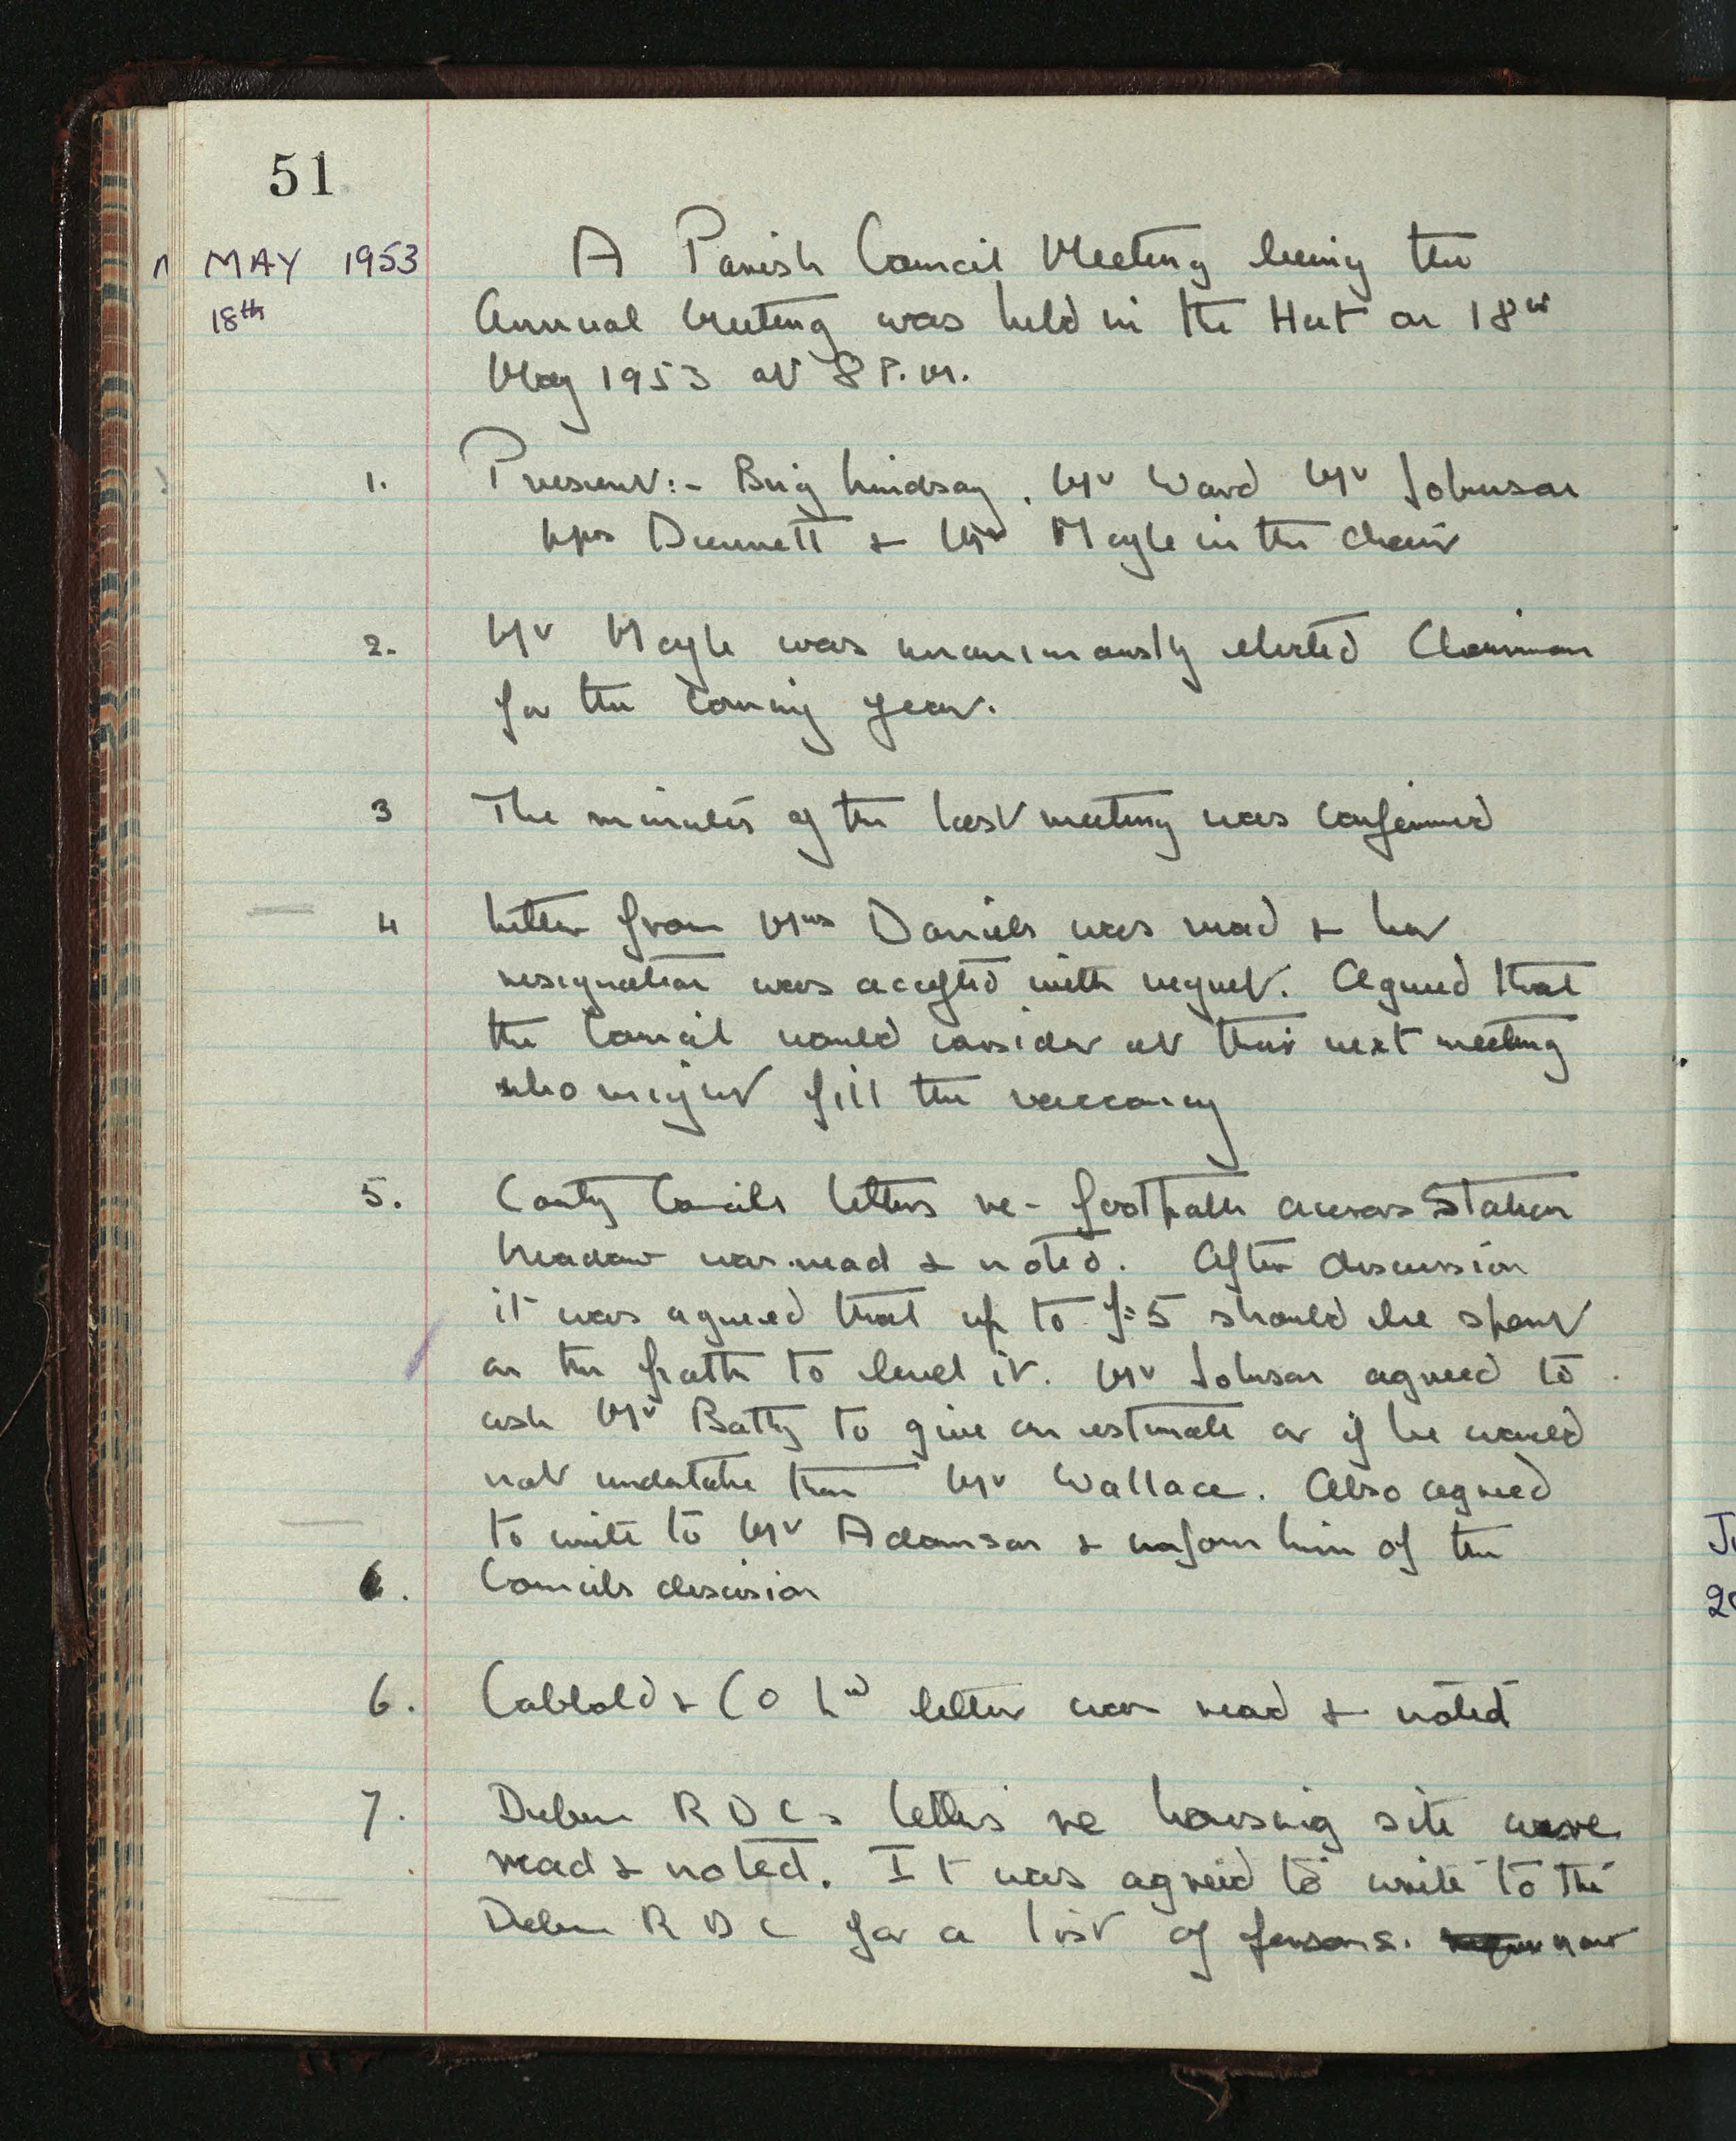 51
MAY 1953
18th
A Parish Council Meeting being the
Annual Meeting was held in the Hut on 18th
May 1953 at 8 P.M.
1. Present:- Brig Lindsay, Mr Ward Mr Johnson
Mrs Dunnett & Mr Mayle in the chair
2. Mr Mayle was unanimously elected Chairman
for the coming year.
3 The minutes of the last meeting was confirmed
4 Letter from Mrs Daniels was read & her
resignation was accepted with regret. Agreed that
the Council would consider at their next meeting
who might fill the vaccancy
5. County Councils letters re- footpath across Station
Meadow was read & noted. After discussion
it was agreed that up to £5 should be spent
on the path to level it. Mr Johnson agreed to
ask Mr Batty to give an estimate or if he would
not undertake then Mr Wallace. Also agreed
to write to Mr Adamson & inform him of the
6. Councils descision
6. Cobbold & Co Ltd letter was read & noted
7. Deben R D Cs letters re housing site were
read & noted. It was agreed to write to the
Deben R D C for a list of persons. now